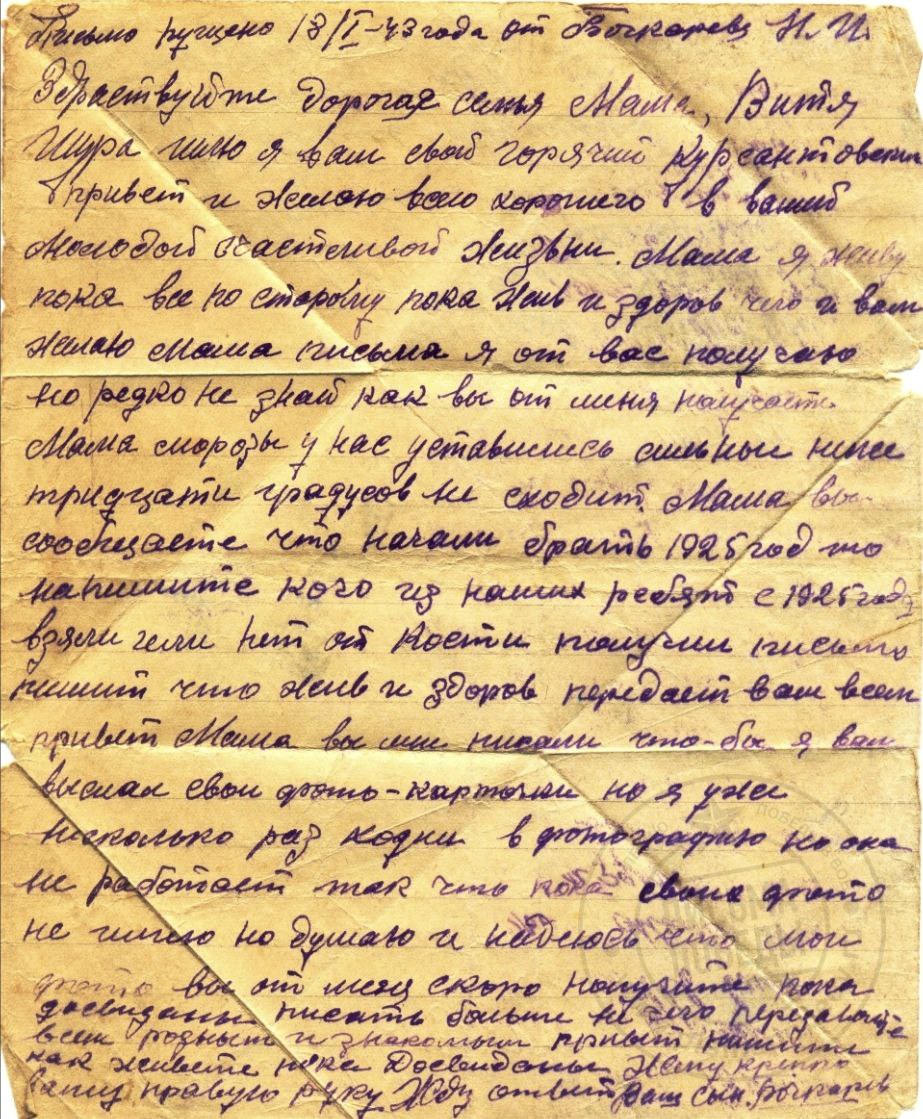 Письмо пущено 13/I-43 года от Бочкарева Н.И.
Здраствуйте дорогая семья Мама, Витя
Шура шлю я вам свой горячий курсантовский
привет и желаю всего хорошего в вашей
молодой счастливой жизни. Мама я живу
пока все по старому пока жив и здоров чего и вам
желаю Мама письма я от вас получаю
но редко не знай как вы от меня получаете.
Мама морозы у нас уставились сильные ниже
тридцати градусов не сходит. Мама вы
сообщаете что начали брать 1925 год то
напишите кого из наших ребят с 1925 года
взяли или нет от Кости получил письмо
пишит что жив и здоров передает вам всем
привет Мама вы мне писали что-бы я вам
выслал свои фото-карточки но я уже
несколько раз ходил в фотографию но она
не работает так что пока своих фото
не имею но думаю и надеюсь что мои
фото вы от меня скоро получите пока
досвиданье писать больше не чего передавайте
всем родным и знакомым привет пишите
как живете пока Досвиданье Жму крепко
вашу правую руку Жду ответ Ваш сын Бочкарев